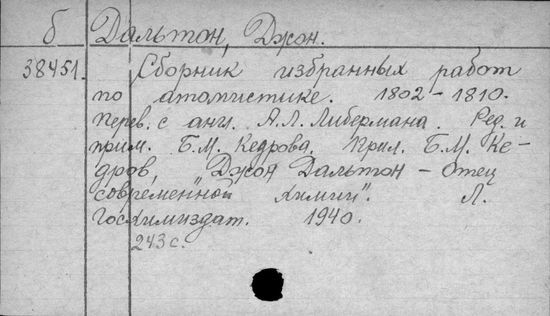 б Дальтон, Джон.
38451. Сборник избранных работ
по атомистике. 1802-1810.
Перев. с анг. А.Л. Либермана. Ред. и
прим. Б.М. Кедрова. Прил. Б.М. Ке-
дров, Джон Дальтон - отец
современ"ной химии". Л.
Госхимиздат. 1940.
243 с.